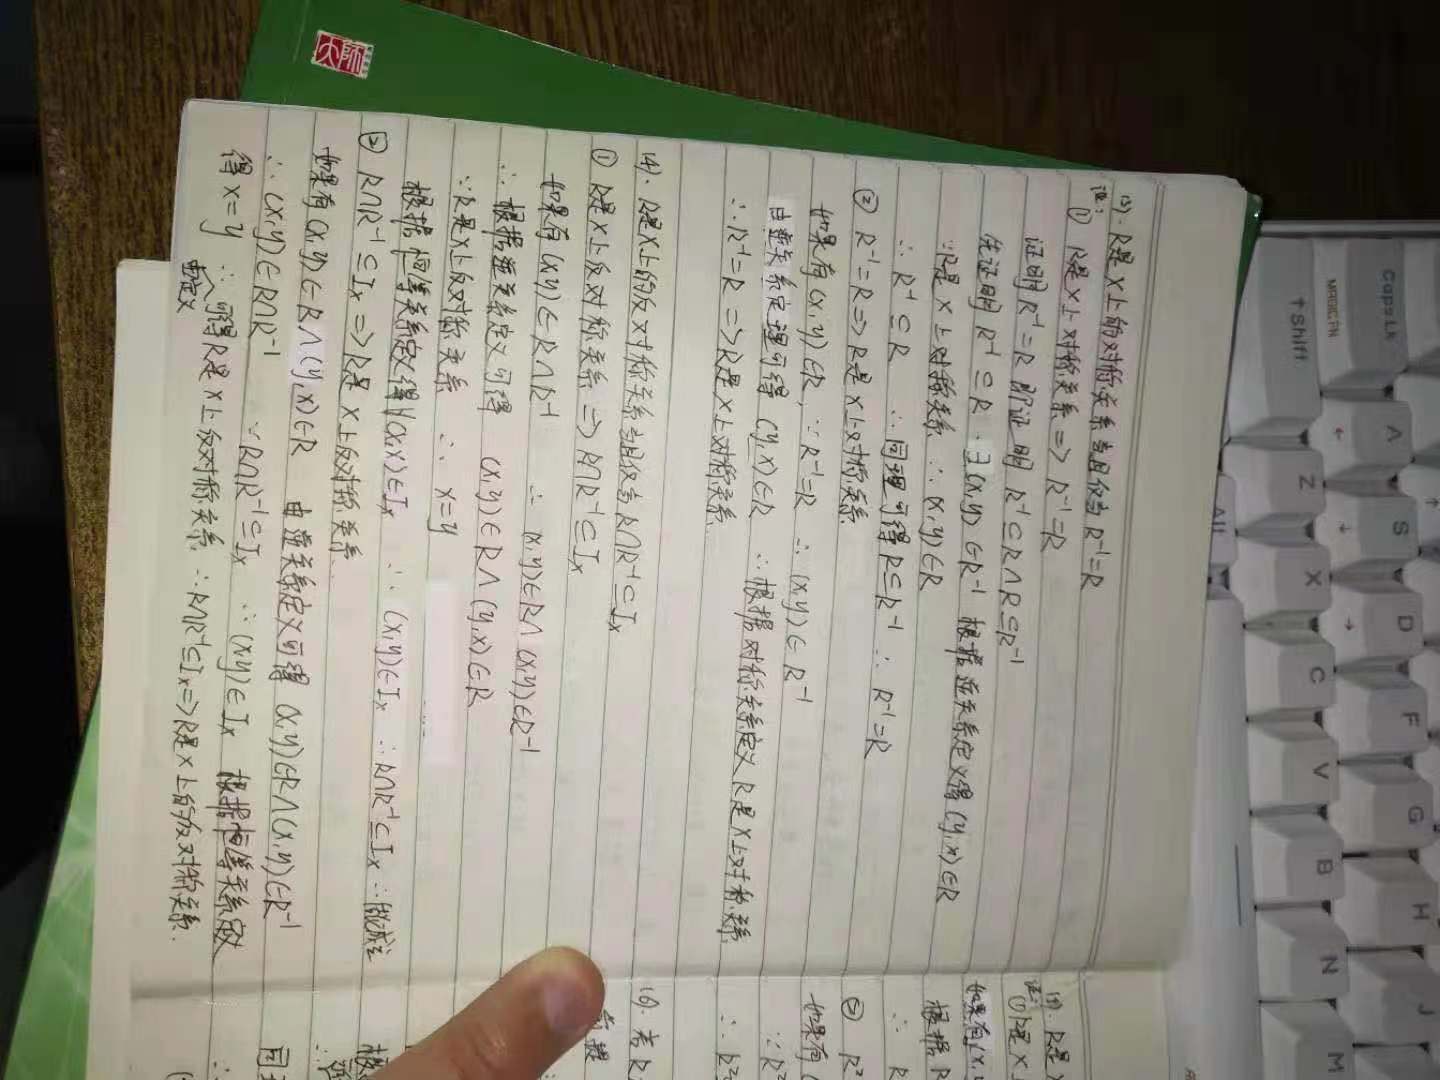 (3). R是X上的对称关系当且仅当R⁻¹=R
证:
① R是X上对称关系 => R⁻¹=R
证明R⁻¹=R 即证明 R⁻¹⊆R∧R⊆R⁻¹
先证明 R⁻¹⊆R. ∃(x,y)∈R⁻¹ 根据逆关系定义得(y,x)∈R
∵R是X上对称关系 ∴(x,y)∈R
∴R⁻¹⊆R ∴同理可得R⊆R⁻¹ ∴R⁻¹=R
② R⁻¹=R => R是X上对称关系
如果有(x,y)∈R, ∵R⁻¹=R ∴(x,y)∈R⁻¹
由逆关系定理可得(y,x)∈R ∴根据对称关系定义R是X上对称关系
∴R⁻¹=R => R是X上对称关系
(4). R是X上的反对称关系当且仅当R∩R⁻¹⊆Iₓ
① R是X上反对称关系 => R∩R⁻¹⊆Iₓ
如果有(x,y)∈R∩R⁻¹ ∴(x,y)∈R∧(x,y)∈R⁻¹
∴根据逆关系定义可得 (x,y)∈R∧(y,x)∈R
∵R是X上反对称关系 ∴x=y
根据恒等关系定义得(x,x)∈Iₓ ∴(x,y)∈Iₓ ∴R∩R⁻¹⊆Iₓ
② R∩R⁻¹⊆Iₓ => R是X上反对称关系
如果有(x,y)∈R∧(y,x)∈R 由逆关系定义可得(x,y)∈R∧(x,y)∈R⁻¹
∴(x,y)∈R∩R⁻¹ ∵R∩R⁻¹⊆Iₓ ∴(x,y)∈Iₓ 根据恒等关系定义
得x=y ∴可得R是X上反对称关系 ∴R∩R⁻¹⊆Iₓ => R是X上的反对称关系.
由定义
(5) R是
证:① R是X
如果有(x,
根据R
② R²
如果有(
∵R²
∴R²
(6). 若R
大師
Caps Lk
↑Shift
A
S
D
F
G
H
J
Z
X
C
V
B
N
M
Alt